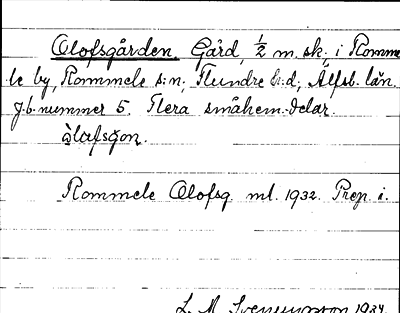 Olofsgården. Gård, ½ m. sk., i Romme
le by, Rommele s:n, Flundre h:d, Älfsb. län.
J.b. nummer 5. Flera småhem.-delar.
òlafsgọn.
Rommele Olofsg. ml. 1932. Prep. i.
1934.